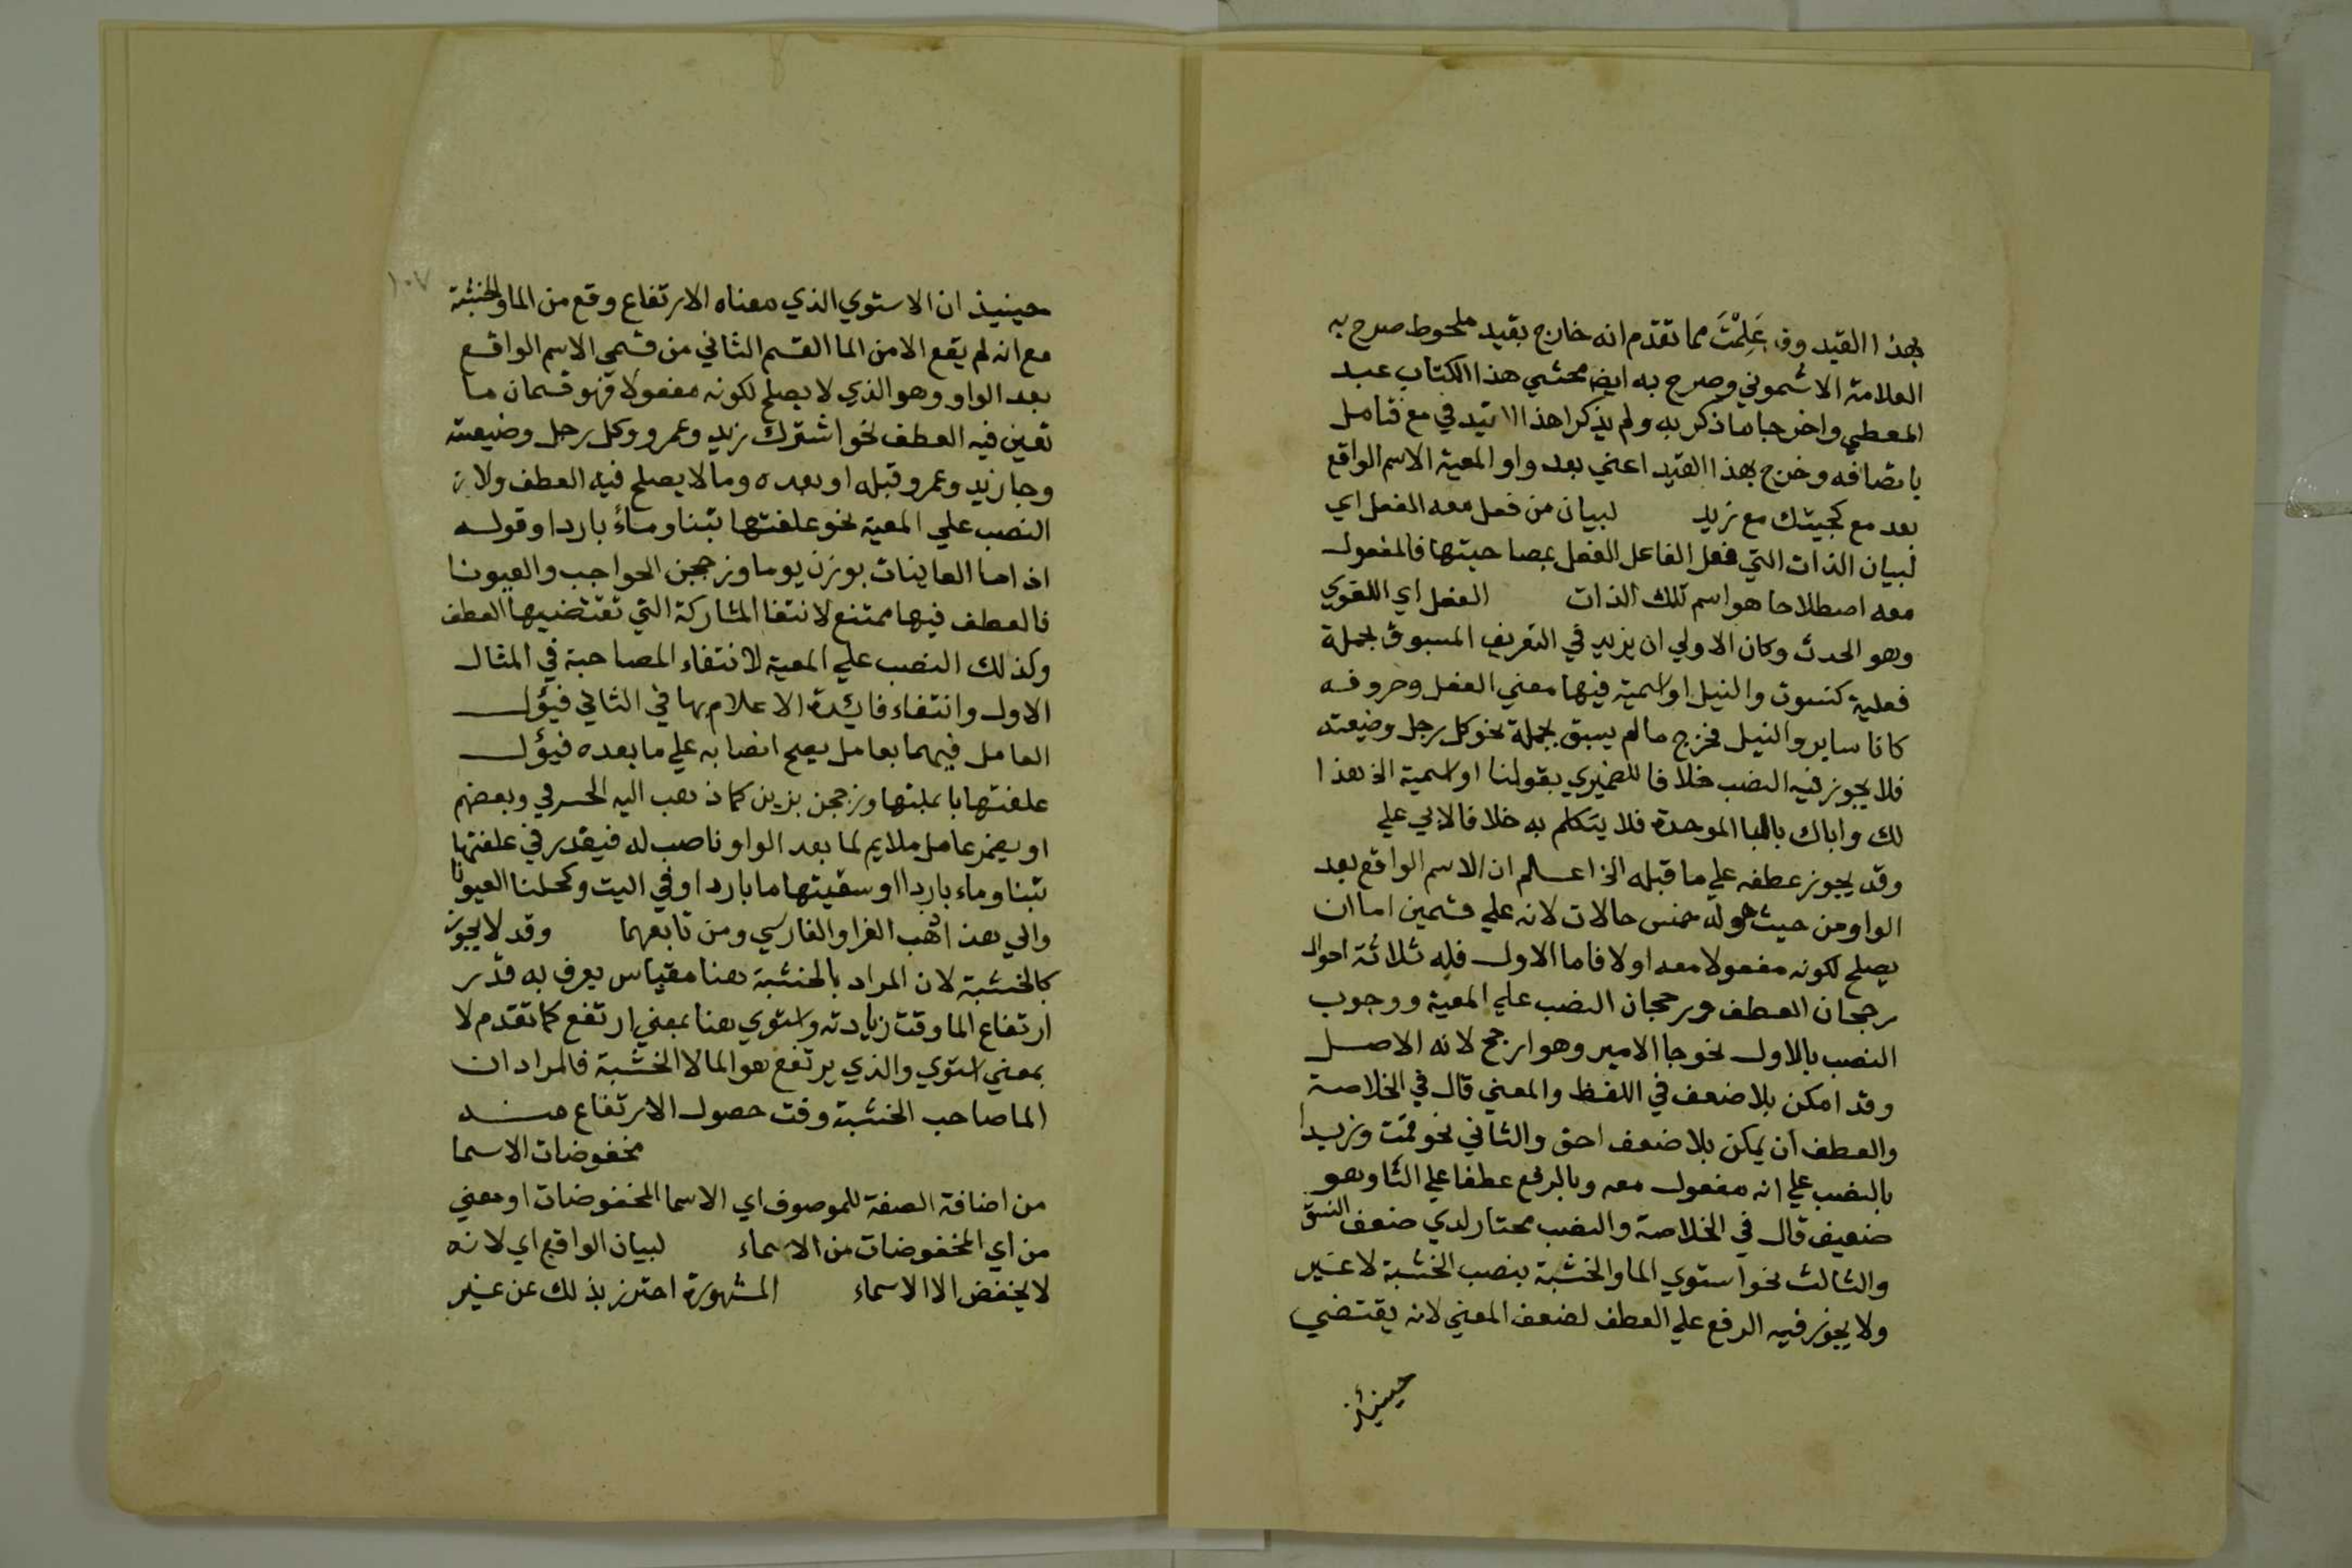 بهذا القيد وقد عَلِمْتَ مما تقدم انه خارج بقيد ملحوظ صرح به
العلامة الاشموني وصرح به ايضا محشي هذا الكتاب عبد
المعطي واخرجا ما ذكر به ولم يذكرا هذا القيد في مع فتامل
بانصافه وخرج بهذا القيد اعني بعد واو المعية الاسم الواقع
بعد مع كجيتك مع زيد لبيان من فعل معه الفعل اي
لبيان الذات التي فعل الفاعل الفعل بمصاحبتها فالمفعول
معه اصطلاحا هو اسم تلك الذات الفعل اي اللغوي
وهو الحدث وكان الاولي ان يزيد في التعريف المسبوق بجملة
فعلية كنسوت والنيل او اسمية فيها معني الفعل وحروفه
كانا ساير والنيل فخرج مالم يسبق بجملة نحو كل رجل وضيعته
فلا يجوز فيه النصب خلافا للصميري بقولنا او اسمية الخ هذا
لك واباك بالبا الموحدة فلا يتكلم به خلافا لابي علي
وقد يجوز عطفه علي ما قبله الخ اعلم ان الاسم الواقع بعد
الواو من حيث هو له خمس حالات لانه علي قسمين اما ان
يصلح لكونه مفعولا معه او لا فاما الاول فله ثلاثة احوال
رجحان العطف ورجحان النصب علي المعية ووجوب
النصب بالاول نحو جا الامير وهو ارجح لانه الاصل
وقد امكن بلا ضعف في اللفظ والمعني قال في الخلاصة
والعطف ان يمكن بلا ضعف احق والثاني نحو قمت وزيدا
بالنصب علي انه مفعول معه وبالرفع عطفا علي التا وهو
ضعيف قال في الخلاصة والنصب مختار لدي ضعف النسق
والثالث نحو استوي الما والخشبة بنصب الخشبة لا غير
ولا يجوز فيه الرفع علي العطف لضعف المعني لانه يقتضي
حينئذ
١٠٧
حينيذ ان الاستوي الذي معناه الارتفاع وقع من الما والخشبة
مع انه لم يقع الا من الما القسم الثاني من قسمي الاسم الواقع
بعد الواو وهو الذي لا يصلح لكونه مفعولا فهو قسمان ما
تعين فيه العطف نحو اشترك زيد وعمرو وكل رجل وضيعته
وجا زيد وعمرو قبله او بعده وما لا يصلح فيه العطف ولا
النصب علي المعية نحو علفتها تبنا وماءً باردا وقوله
اذا ما الغاينات برزن يوما وزججن الحواجب والعيونا
فالعطف فيها ممتنع لانتفا المشاركة التي تقتضيها العطف
وكذلك النصب علي المعية لانتفاء المصاحبة في المثال
الاول وانتفاء فائدة الاعلام بها في الثاني فيؤل
العامل فيهما بعامل يصح انصابه علي ما بعده فيؤل
علفتها بانلتها وزججن بزين كما ذهب اليه الجرمي وبعضهم
او يضمر عامل ملايم لما بعد الواو ناصب له فيقدر في علفتها
تبنا وماء باردا او سقيتها ما باردا وفي البيت وكحلنا العيونا
والي هذا ذهب الفرا والفارسي ومن تابعهما وقد لا يجوز
كالخشبة لان المراد بالخشبة هنا مقياس يعرف به قدر
ارتفاع الما وقت زيادته واستوي هنا بمعني ارتفع كما تقدم لا
بمعني استوي والذي يرتفع هو الما لا الخشبة فالمراد ان
الما صاحب الخشبة وقت حصول الارتفاع منه
مخفوضات الاسما
من اضافة الصفة للموصوف اي الاسما المخفوضات او معني
من اي المخفوضات من الاسماء لبيان الواقع اي لانه
لا يخفض الا الاسماء المشهورة احترز بذلك عن غير